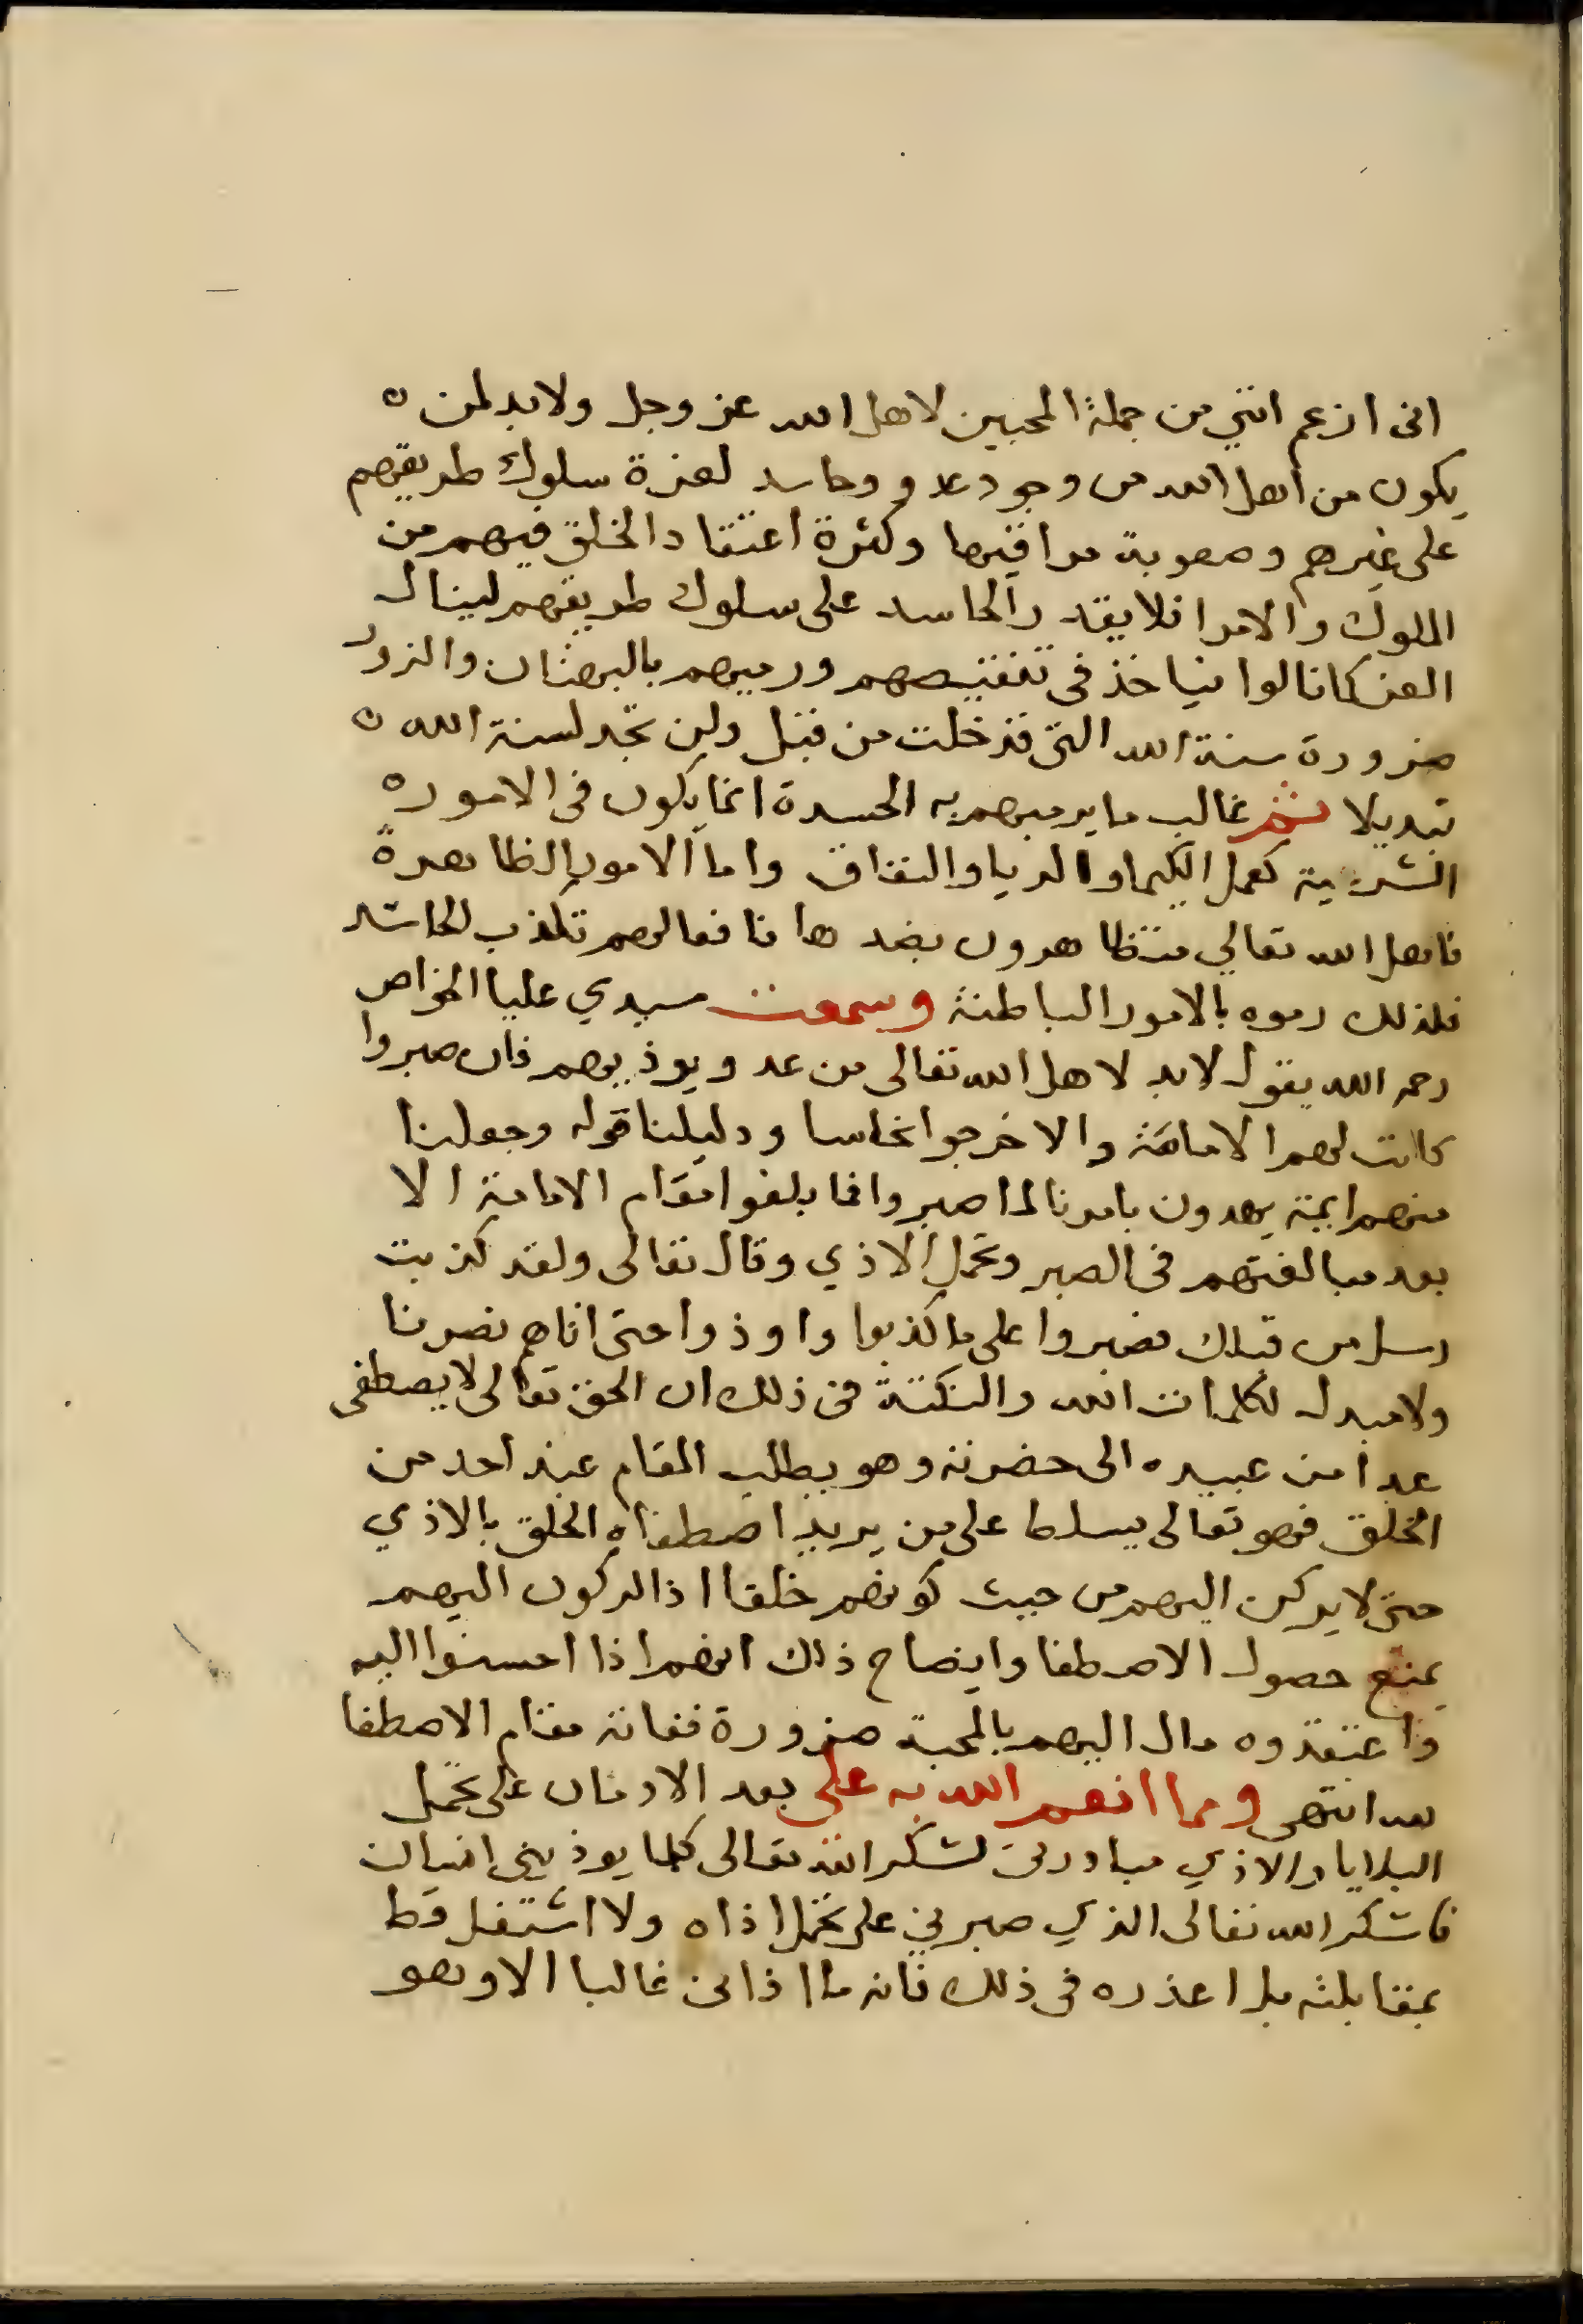 انى ازعم اننى من جملة المحبين لاهل الله عز وجل ولابد لمن ه
يكون من اهل الله من وجود عدو وحاسد لعزة سلوك طريقهم
على غيرهم وصعوبة مراقيها وكثرة اعتقاد الخلق فيهم من
الملوك والامرا فلا يقدر الحاسد على سلوك طريقهم لينال
العز كما نالوا فياخذ فى تنقيصهم ورميهم بالبهتان والزور
ضرورة سنة الله التى قد خلت من قبل ولن تجد لسنة الله ه
تبديلا ثم غالب ما يرميهم به الحسدة انما يكون فى الامور ه
السرية كعمل الكيميا والريا والنفاق واما الامور الظاهرة
فاهل الله تعالى متظاهرون بضدها فافعالهم تكذب الحاسد
فلذلك رموه بالامور الباطنة وسمعت سيدي عليا الخواص
رحمه الله يقول لابد لاهل الله تعالى من عدو يوذيهم فان صبروا
كانت لهم الامامة والا خرجوا نحاسا ودليلنا قوله وجعلنا
منهم ايمة يهدون بامرنا لما صبروا فما بلغوا مقام الامامة الا
بعد مبالغتهم فى الصبر وتحمل الاذي وقال تعالى ولقد كذبت
رسل من قبلك فصبروا على ما كذبوا واوذوا حتى اتاهم نصرنا
ولا مبدل لكلمات الله والنكتة فى ذلك ان الحق تعالى لا يصطفى
عبدا من عبيده الى حضرته وهو يطلب المقام عند احد من
الخلق فهو تعالى يسلط على من يريد اصطفاه الخلق بالاذي
حتى لا يركن اليهم من حيث كونهم خلقا اذ الركون اليهم
يمنع حصول الاصطفا وايضاح ذلك انهم اذا احسنوا اليه
واعتقدوه مال اليهم بالمحبة ضرورة ففاته مقام الاصطفا
انتهى ومما انعم الله به على بعد الادمان على تحمل
البلايا والاذي مبادرتى لشكر الله تعالى كلما يوذينى انسان
فاشكر الله تعالى الذي صبرنى على تحمل اذاه ولا اشتغل قط
بمقابلته بل اعذره فى ذلك فانه ما اذانى غالبا الا وهو